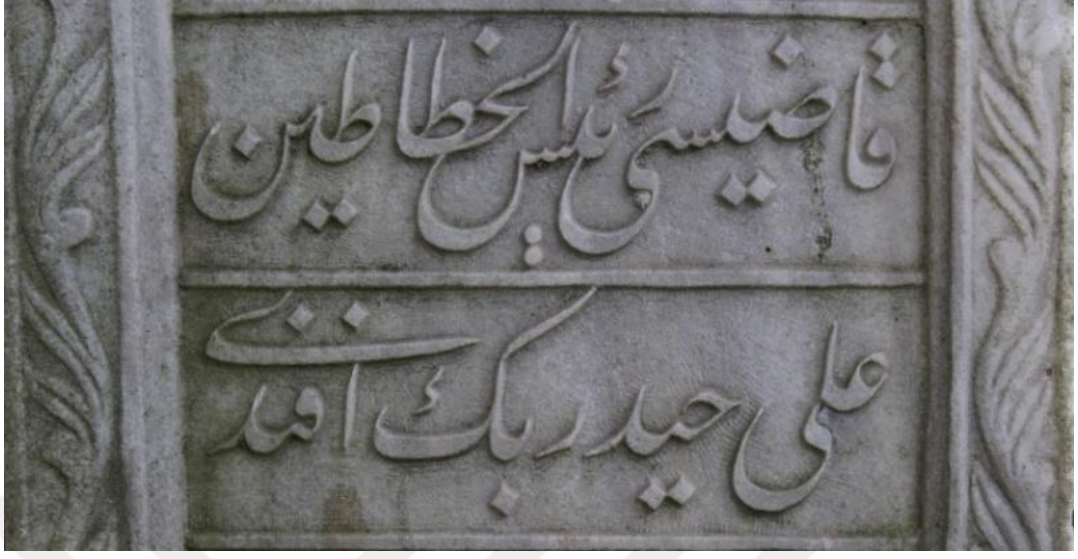 قاضیسی رئیس الخطاطین
علی حیدر بك افندی